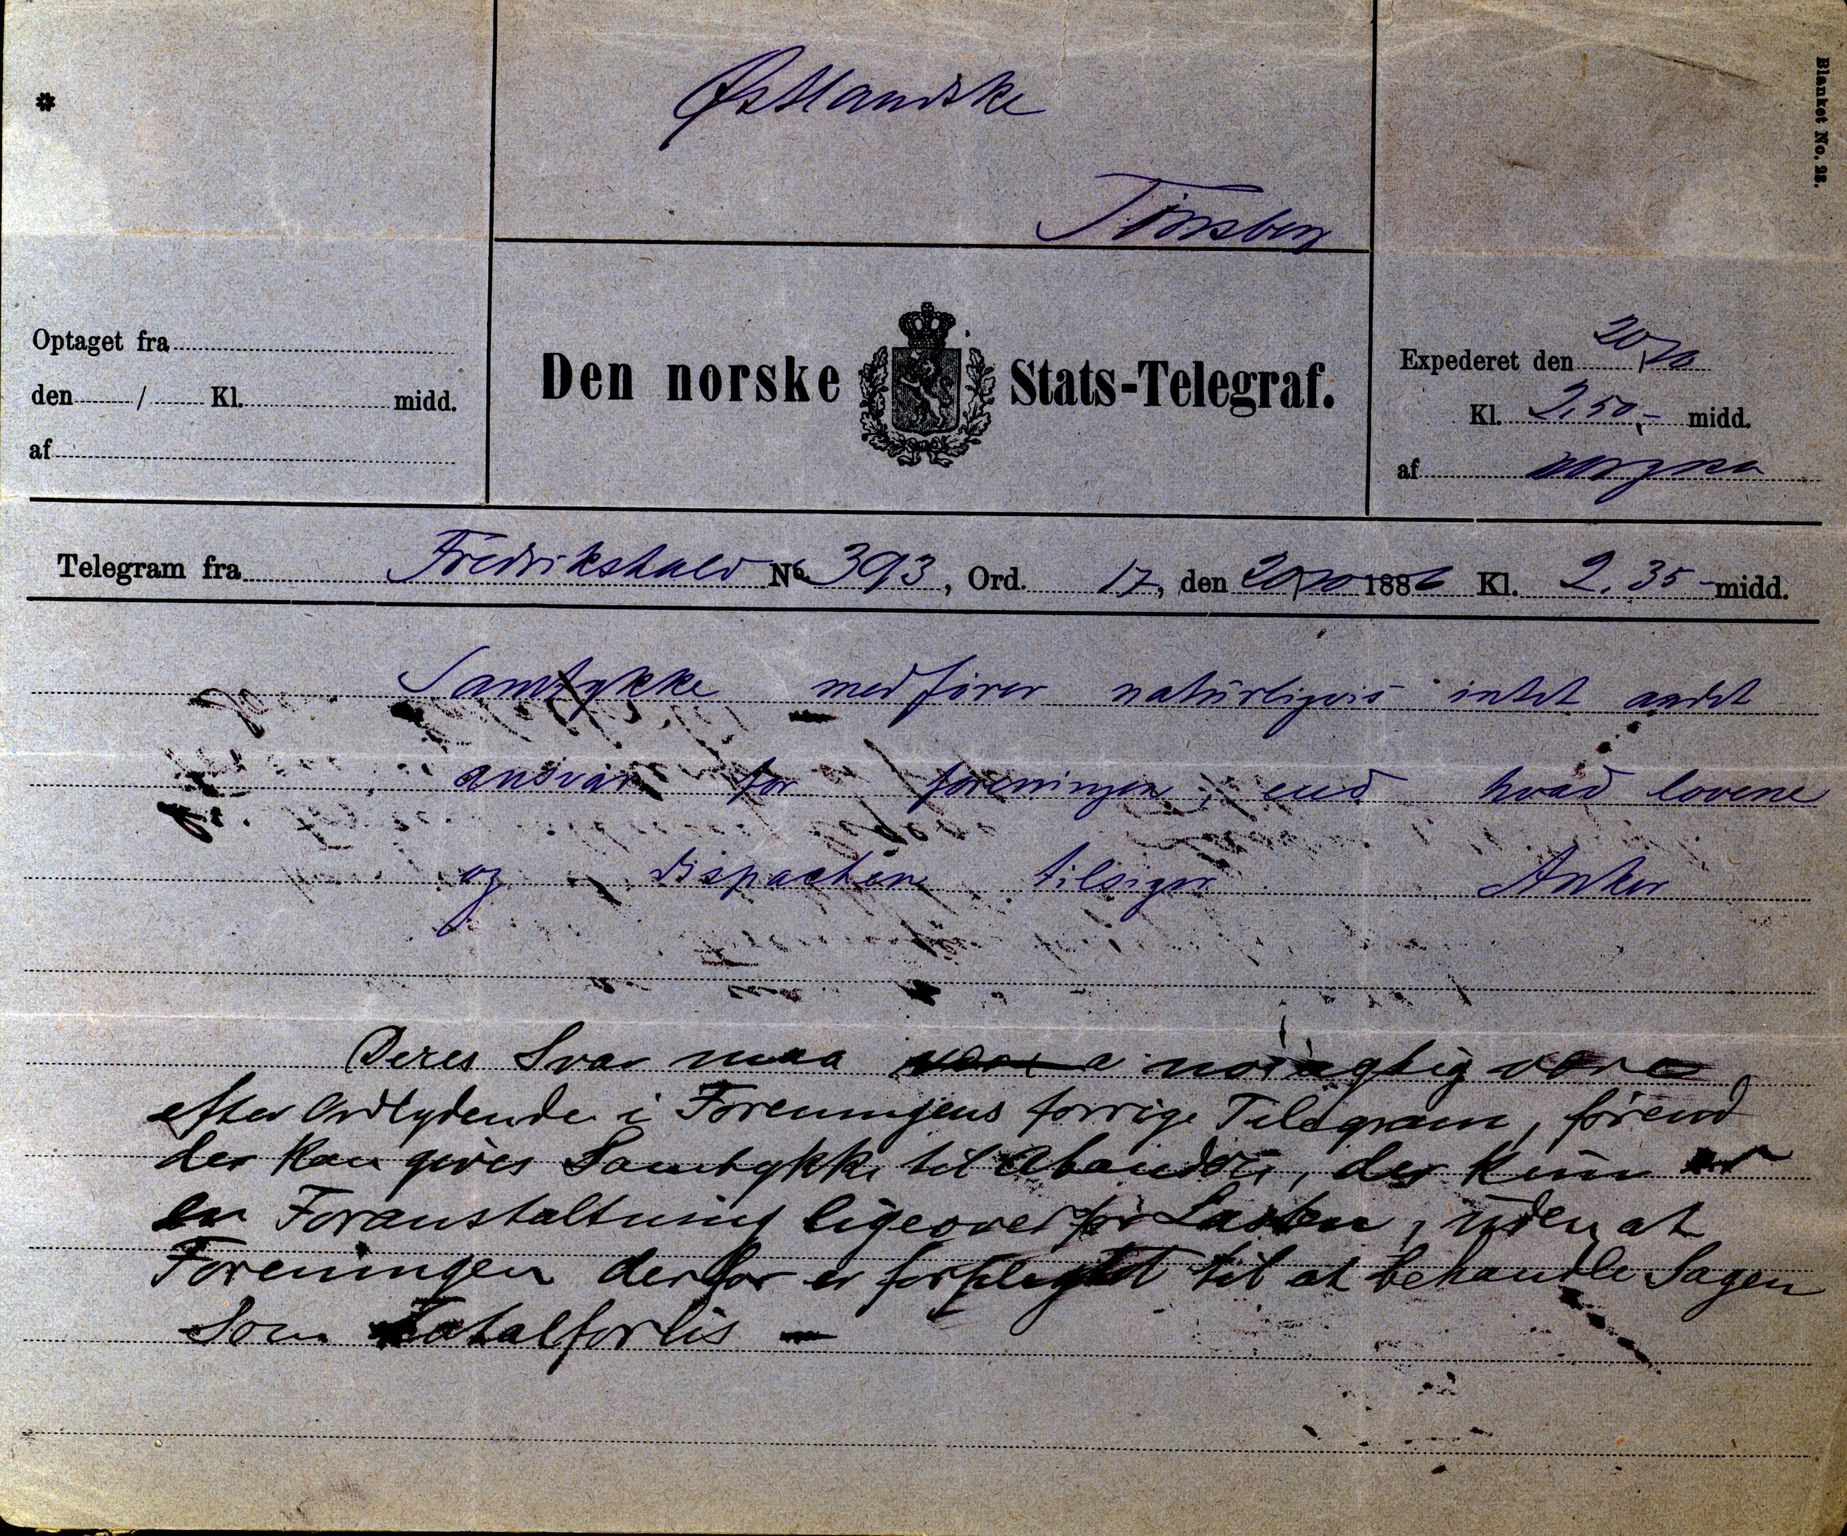 Blanket No. 28.
*
Østlandske
Tönsberg
Optaget fra
den / Kl. midd.
af
Den norske Stats-Telegraf.
Expederet den 20/10
Kl. 2,50 midd.
af
Telegram fra Fredrikshald No 393, Ord. 17, den 20/10 1886 Kl. 2.35 midd.
Samtykke medfører naturligvis intet andet
ansvar for foreningen, end hvad lovene
og dispachen tilsiger Anker
Deres Svar maa nøiagtig være
efter Ordlydende i Foreningens forrige Telegram, førend
der kan gives Samtykke til Abandon, der kun er
en Foranstaltning ligeoverfor Lasten, uden at
Foreningen derfor er forpligtet til at behandle Sagen
som Totalforlis –